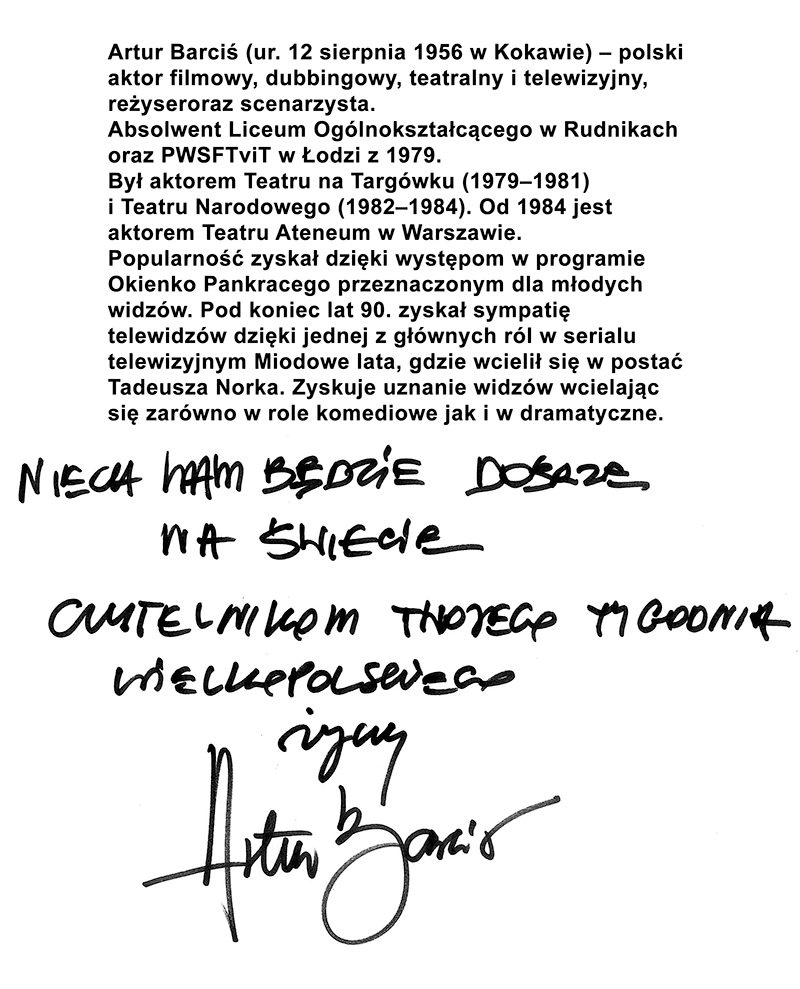 Artur Barciś (ur. 12 sierpnia 1956 w Kokawie) – polski
aktor filmowy, dubbingowy, teatralny i telewizyjny,
reżyseroraz scenarzysta.
Absolwent Liceum Ogólnokształcącego w Rudnikach
oraz PWSFTviT w Łodzi z 1979.
Był aktorem Teatru na Targówku (1979–1981)
i Teatru Narodowego (1982–1984). Od 1984 jest
aktorem Teatru Ateneum w Warszawie.
Popularność zyskał dzięki występom w programie
Okienko Pankracego przeznaczonym dla młodych
widzów. Pod koniec lat 90. zyskał sympatię
telewidzów dzięki jednej z głównych ról w serialu
telewizyjnym Miodowe lata, gdzie wcielił się w postać
Tadeusza Norka. Zyskuje uznanie widzów wcielając
się zarówno w role komediowe jak i w dramatyczne.
NIECH WAM BĘDZIE DOBRZE
NA ŚWIECIE
CZYTELNIKOM TWOJEGO TYGODNIA
WIELKOPOLSKIEGO
życzy
Artur Barciś